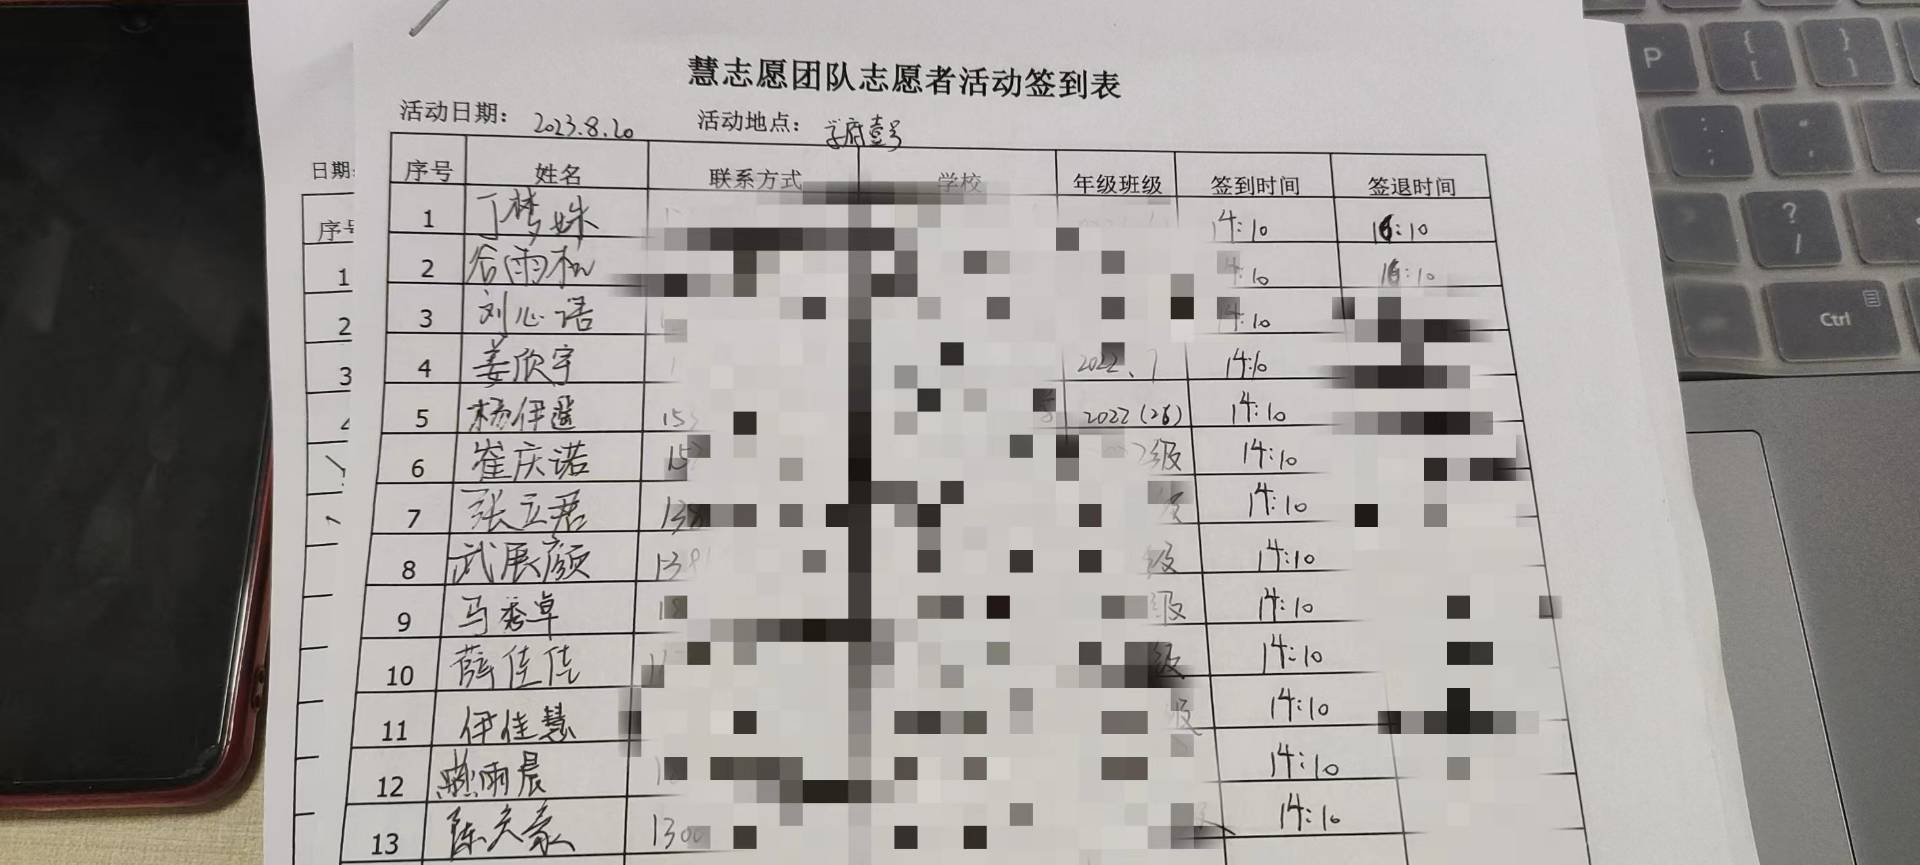 慧志愿团队志愿者活动签到表
活动日期: 2023.8.20 活动地点: 学府壹号
日期:
序号 姓名 联系方式 学校 年级班级 签到时间 签退时间
1 丁梦姝 14:10 16:10
2 谷雨 14:10 16:10
3 刘心语 14:10
4 姜欣宇 2022. 14:10
5 杨伊遥 15 2022(26) 14:10
6 崔庆诺 15 级 14:10
7 张立君 13 14:10
8 武展颜 13 级 14:10
9 马秀卓 级 14:10
10 薛佳佳 级 14:10
11 伊佳慧 级 14:10
12 燕雨晨 14:10
13 130 14:10
序
1
2
3
P
{ [
} ]
: ;
" '
? /
Ctrl